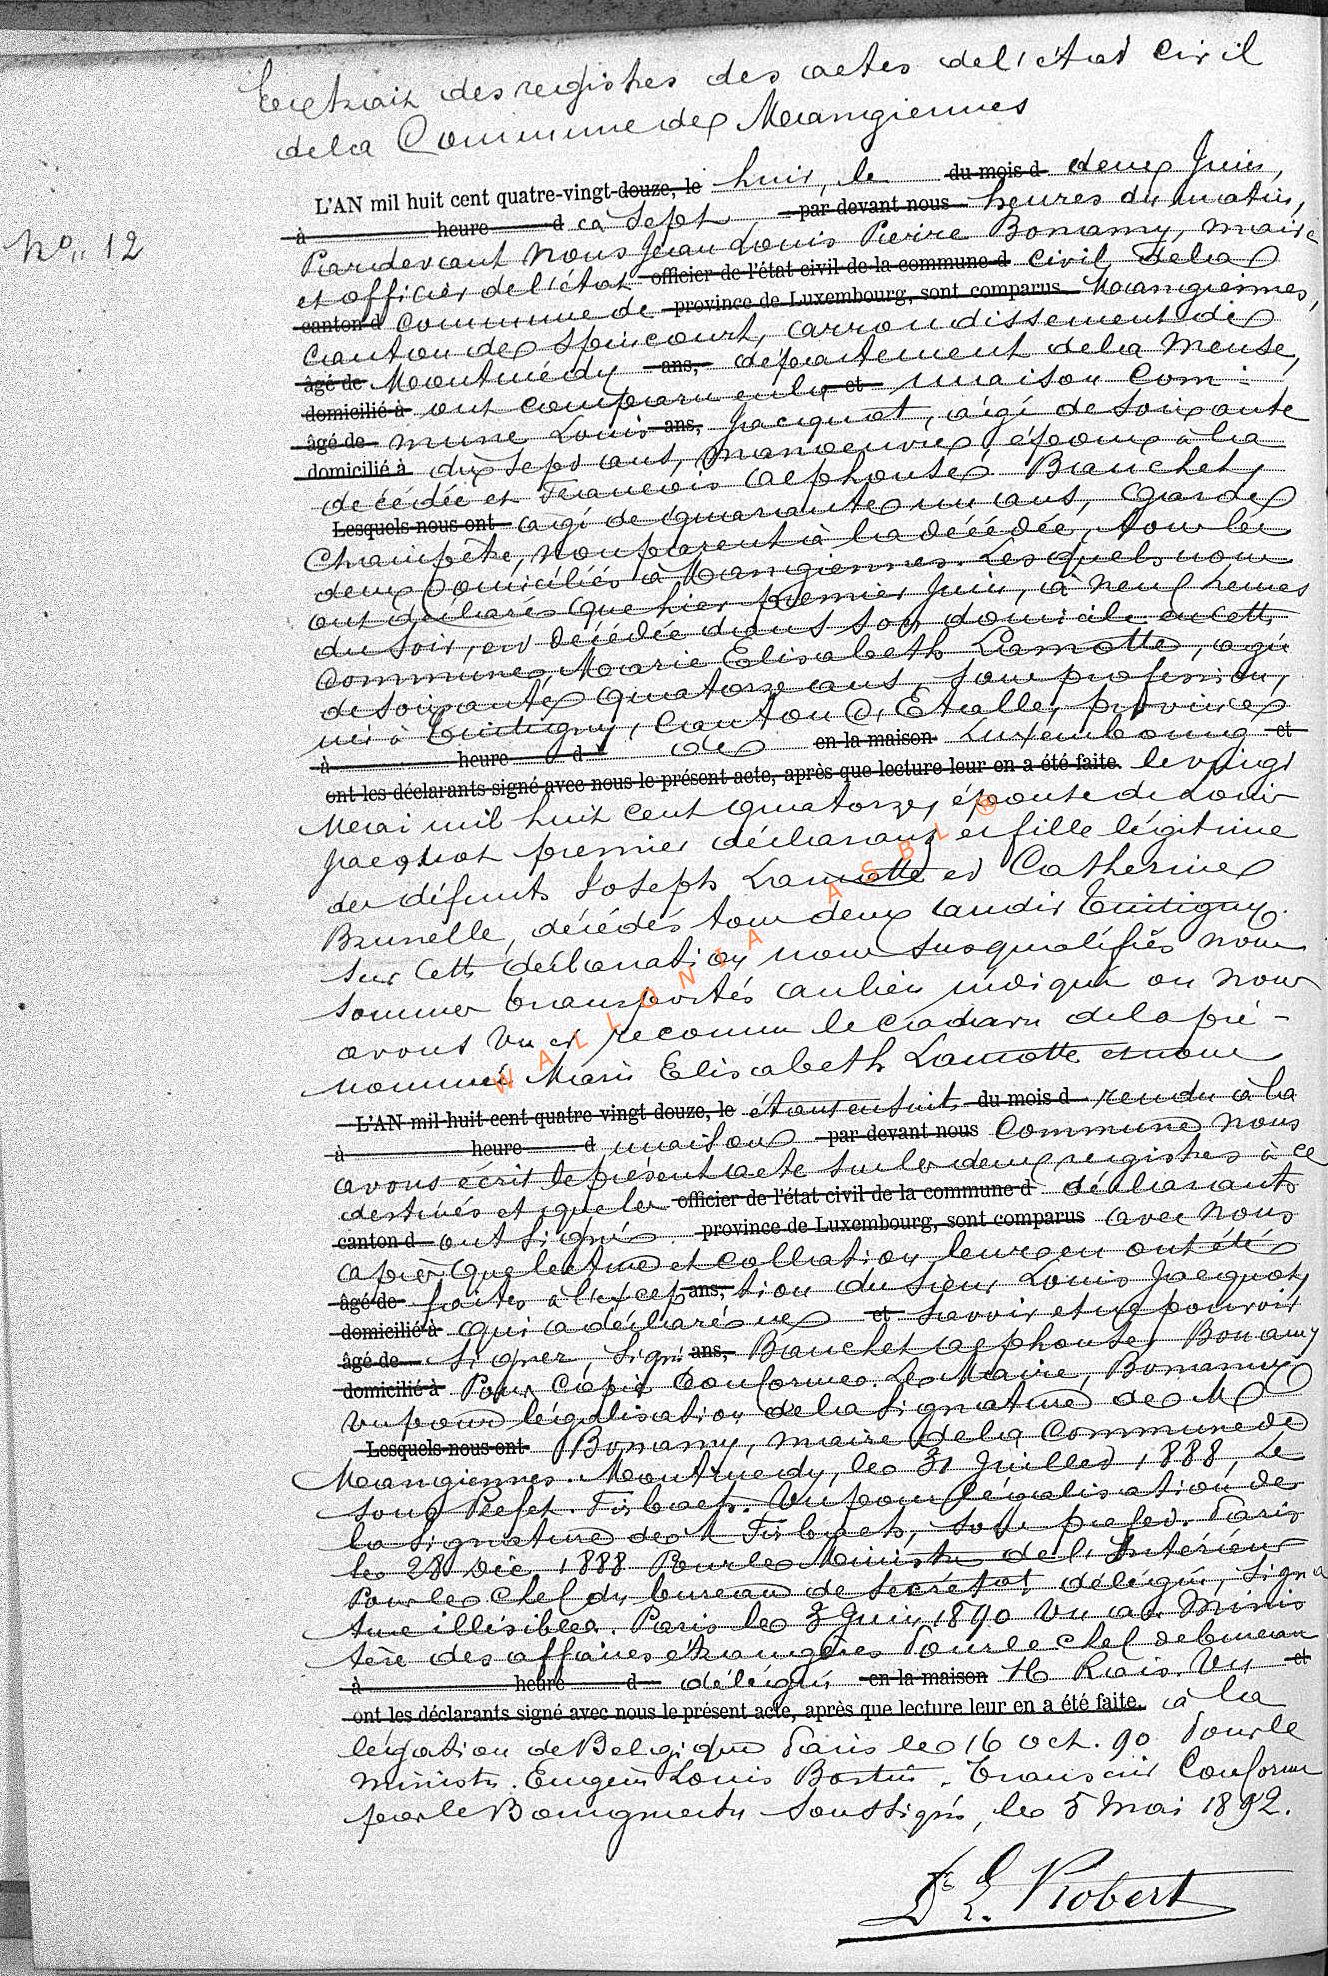 Extrait des registres des actes de l'état civil
de la Commune de Mangiennes
L'AN mil huit cent quatre-vingt-douze, le huit, le du mois d deux Juin,
N° 12
à heure d à Sept par devant nous heures du matin,
Pardevant Nous Jean Louis Pierre Bonamy, maire
et officier de l'état officier de l'état civil de la commune d civil de la
canton d commune de province de Luxembourg, sont comparus Mangiennes,
Canton de Spincourt, arrondissement de
âgé de Montmédy ans, département de la Meuse,
domicilié à ont comparu en la et maison Com-
âgé de mune Louis ans, Jacquot, âgé de soixante
domicilié à dix sept ans, manoeuvre, époux à la
décédée et François Alphonse Bauchet,
Lesquels nous ont âgé de quarante un ans, Garde
Champêtre, non parent à la décédée, tous les
deux domiciliés à Mangiennes. Lesquels nous
ont déclarés que hier premier Juin, à neuf heures
du soir, est décédée dans son domicile en cette
Commune, Marie Elisabeth Lamotte, agée
de soixante quatorze ans, sans profession,
née à Tintigny, Canton d'Etalle, province
à heure d de en la maison Luxembourg et
ont les déclarants signé avec nous le présent acte, après que lecture leur en a été faite. le vingt
Mai mil huit cent quatorze, épouse de Louis
Jacquot premier déclarant et fille légitime
des défunts Joseph Lamotte et Catherine
Brunelle, décédés tous deux audit Tintigny.
Sur cette déclaration nous susqualifiés nous
sommes transportés au lieu indiqué ou nous
avons vu et reconnu le cadavre de la pré-
nommée Marie Elisabeth Lamotte et nous
L'AN mil huit cent quatre-vingt-douze, le étant ensuite du mois d rendu à la
à heure d maison par devant nous Commune nous
avons écrit le présent acte sur les deux registres à ce
destinés et que les officier de l'état civil de la commune d déclarants
canton d ont signé province de Luxembourg, sont comparus avec nous
après que lecture et collation leur en ont été
âgé de faites à l'excep ans, tion du sieur Louis Jacquot,
domicilié à qui a déclaré ne et savoir et ne pouvoir
âgé de signer, signé ans, Bauchet Alphonse, Bonamy
domicilié à Pour Copie Conforme. Le Maire, Bonamy
Vu pour légalisation de la signature de M
Lesquels nous ont Bonamy, maire de la Commune de
Mangiennes. Montmédy, le 31 Juillet 1888, Le
sous Préfet. Vu pour légalisation de
la signature de M sous préfet. Paris
le 28 Déc. 1888 Pour le Ministre de l'Intérieur
Pour le chef du bureau de secrétat délégué, Signa
ture illisible. Paris le 3 Juin 1890 Vu au Minis
tère des affaires étrangères Pour le chef de bureau
à heure d délégué en la maison Vu et
ont les déclarants signé avec nous le présent acte, après que lecture leur en a été faite. à la
légation de Belgique Paris le 16 oct. 90 Pour le
ministre. Eugène Louis Transcrit Conforme
par le Bourgmestre Soussigné, le 5 Mai 1892.
Dr E. Robert
WALLONIA ASBL ®